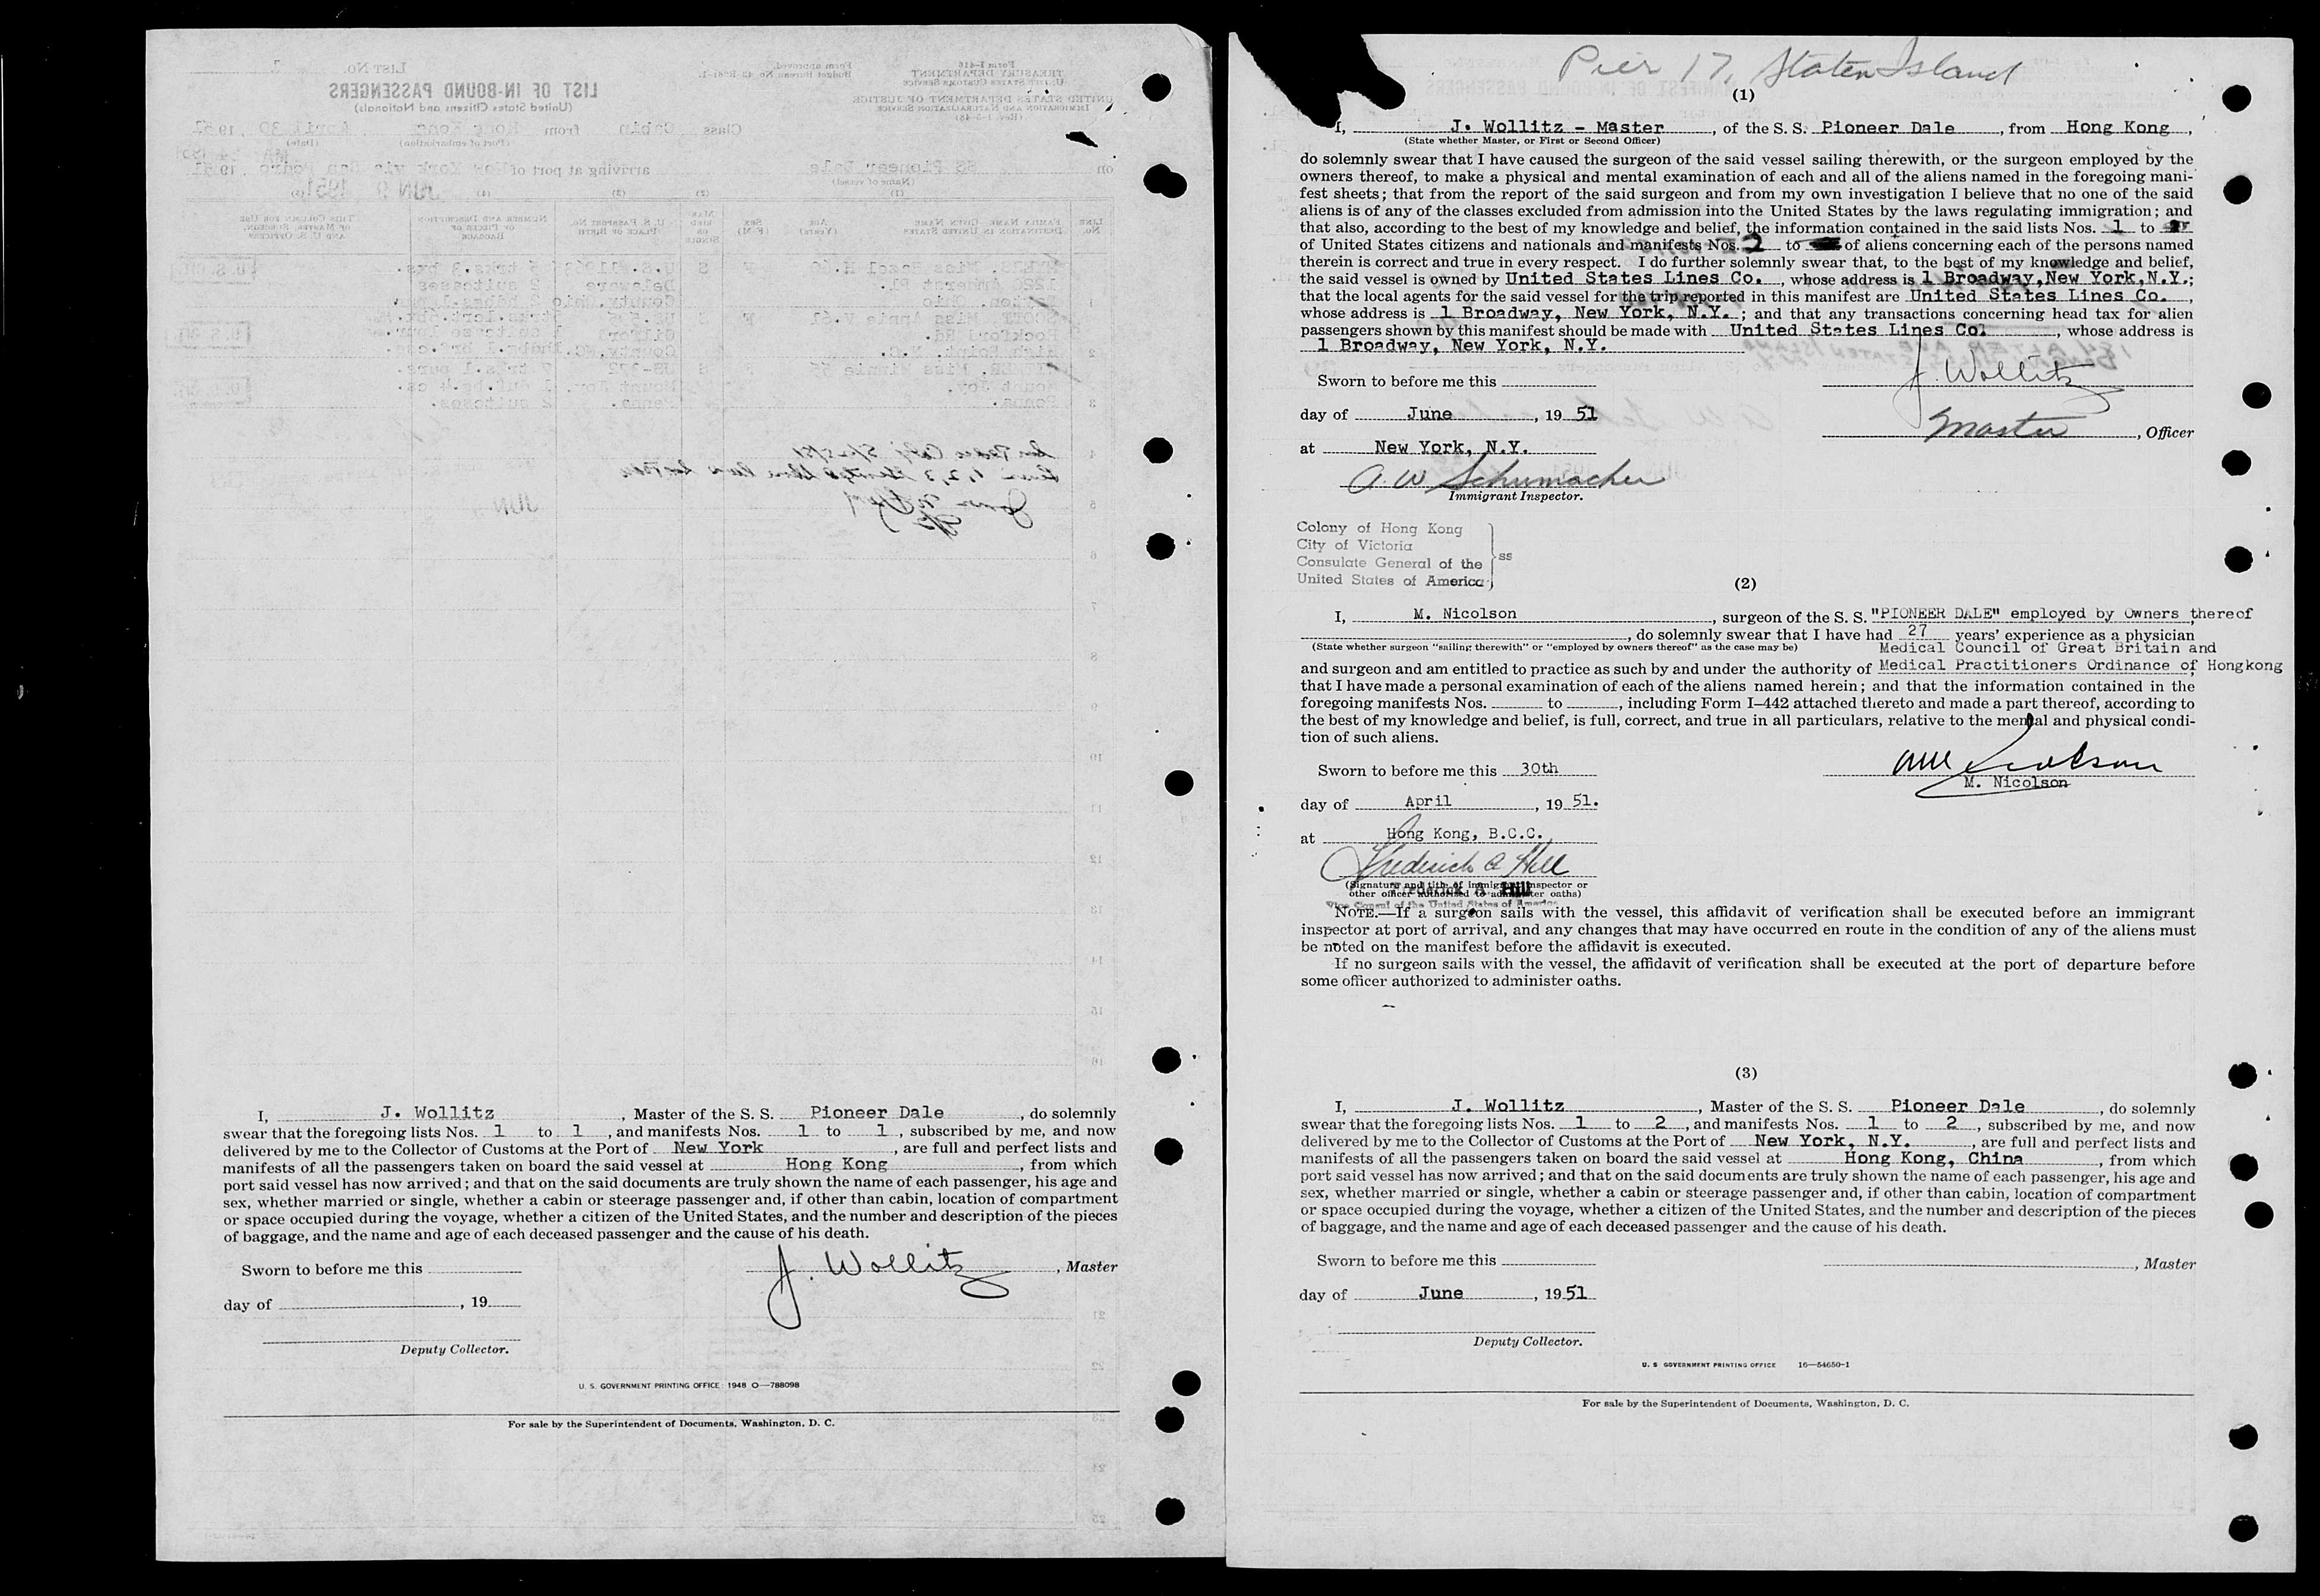 I, J. Wollitz, Master of the S. S. Pioneer Dale, do solemnly
swear that the foregoing lists Nos. 1 to 1, and manifests Nos. 1 to 1, subscribed by me, and now
delivered by me to the Collector of Customs at the Port of New York, are full and perfect lists and
manifests of all the passengers taken on board the said vessel at Hong Kong, from which
port said vessel has now arrived; and that on the said documents are truly shown the name of each passenger, his age and
sex, whether married or single, whether a cabin or steerage passenger and, if other than cabin, location of compartment
or space occupied during the voyage, whether a citizen of the United States, and the number and description of the pieces
of baggage, and the name and age of each deceased passenger and the cause of his death.
Sworn to before me this
J. Wollitz, Master
day of , 19
Deputy Collector.
U. S. GOVERNMENT PRINTING OFFICE : 1948 O—788098
For sale by the Superintendent of Documents, Washington, D. C.
Pier 17, Staten Island
(1)
I, J. Wollitz - Master, of the S. S. Pioneer Dale, from Hong Kong,
(State whether Master, or First or Second Officer)
do solemnly swear that I have caused the surgeon of the said vessel sailing therewith, or the surgeon employed by the
owners thereof, to make a physical and mental examination of each and all of the aliens named in the foregoing mani-
fest sheets; that from the report of the said surgeon and from my own investigation I believe that no one of the said
aliens is of any of the classes excluded from admission into the United States by the laws regulating immigration; and
that also, according to the best of my knowledge and belief, the information contained in the said lists Nos. 1 to
of United States citizens and nationals and manifests Nos. 2 to of aliens concerning each of the persons named
therein is correct and true in every respect. I do further solemnly swear that, to the best of my knowledge and belief,
the said vessel is owned by United States Lines Co., whose address is 1 Broadway, New York, N.Y.;
that the local agents for the said vessel for the trip reported in this manifest are United States Lines Co.,
whose address is 1 Broadway, New York, N.Y.; and that any transactions concerning head tax for alien
passengers shown by this manifest should be made with United States Lines Co., whose address is
1 Broadway, New York, N.Y.
Sworn to before me this
J. Wollitz
day of June, 19 51
Master, Officer
at New York, N.Y.
A. W Schumacher
Immigrant Inspector.
Colony of Hong Kong
City of Victoria
Consulate General of the ss
United States of America
(2)
I, M. Nicolson, surgeon of the S. S. "PIONEER DALE" employed by Owners thereof
, do solemnly swear that I have had 27 years' experience as a physician
(State whether surgeon "sailing therewith" or "employed by owners thereof" as the case may be)
Medical Council of Great Britain and
and surgeon and am entitled to practice as such by and under the authority of Medical Practitioners Ordinance of Hongkong,
that I have made a personal examination of each of the aliens named herein; and that the information contained in the
foregoing manifests Nos. to , including Form I–442 attached thereto and made a part thereof, according to
the best of my knowledge and belief, is full, correct, and true in all particulars, relative to the mental and physical condi-
tion of such aliens.
Sworn to before me this 30th
M. Nicolson
day of April, 19 51.
at Hong Kong, B.C.C.
Frederick A Hill
(Signature and title of immigrant inspector or
other officer authorized to administer oaths)
Frederick A. Hill
Vice Consul of the United States of America
NOTE.—If a surgeon sails with the vessel, this affidavit of verification shall be executed before an immigrant
inspector at port of arrival, and any changes that may have occurred en route in the condition of any of the aliens must
be noted on the manifest before the affidavit is executed.
If no surgeon sails with the vessel, the affidavit of verification shall be executed at the port of departure before
some officer authorized to administer oaths.
(3)
I, J. Wollitz, Master of the S. S. Pioneer Dale, do solemnly
swear that the foregoing lists Nos. 1 to 2, and manifests Nos. 1 to 2, subscribed by me, and now
delivered by me to the Collector of Customs at the Port of New York, N.Y., are full and perfect lists and
manifests of all the passengers taken on board the said vessel at Hong Kong, China, from which
port said vessel has now arrived; and that on the said documents are truly shown the name of each passenger, his age and
sex, whether married or single, whether a cabin or steerage passenger and, if other than cabin, location of compartment
or space occupied during the voyage, whether a citizen of the United States, and the number and description of the pieces
of baggage, and the name and age of each deceased passenger and the cause of his death.
Sworn to before me this
, Master
day of June, 19 51
Deputy Collector.
U. S GOVERNMENT PRINTING OFFICE 16—54650-1
For sale by the Superintendent of Documents, Washington, D. C.